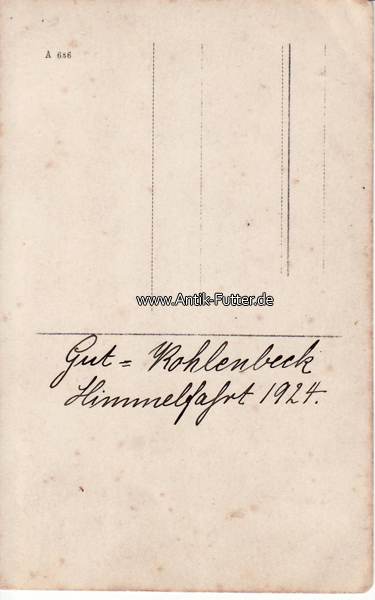 A 686
www.Antik-Futter.de
Gut = Kohlenbeck
Himmelfahrt 1924.